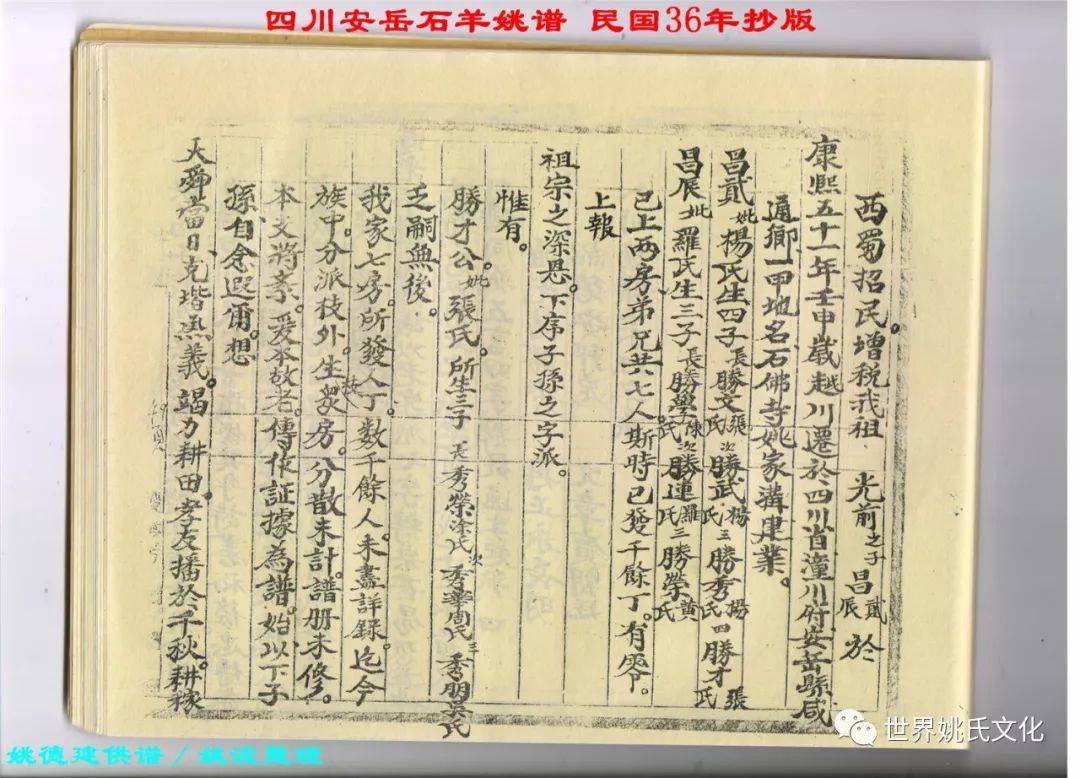 四川安岳石羊姚谱 民国36年抄版
西蜀招民。增税我祖 光前之子 昌貳辰 於
康熙五十一年壬申歲越川遷於四川省潼川府安岳縣咸
通鄉一甲地名石佛寺姚家溝建業。
昌貳妣楊氏生四子長勝文張氏次勝武楊氏三勝秀楊氏四勝才張氏
昌辰妣羅氏生三子長勝學陳氏次勝連羅氏三勝榮黃氏
已上两房弟兄共七人斯時已發千餘丁。有零。
上報
祖宗之深恩。下序子孫之字派。
惟有。
勝才公。妣張氏。所生三子長秀榮涂氏次秀華周氏三秀明吴氏
乏嗣無後。
我家七房。所發人丁。数千餘人。未盡詳録。迄今
族中。分派枝外。生数房。分散未計。譜册未修。
本支將紊。爰本故老。傳依証據為譜。始以下子
孫自念遐爾想
大舜當日。克堦烝義。竭力耕田。孝友播於千秋。耕稼
姚德建供谱/姚谈整理
世界姚氏文化